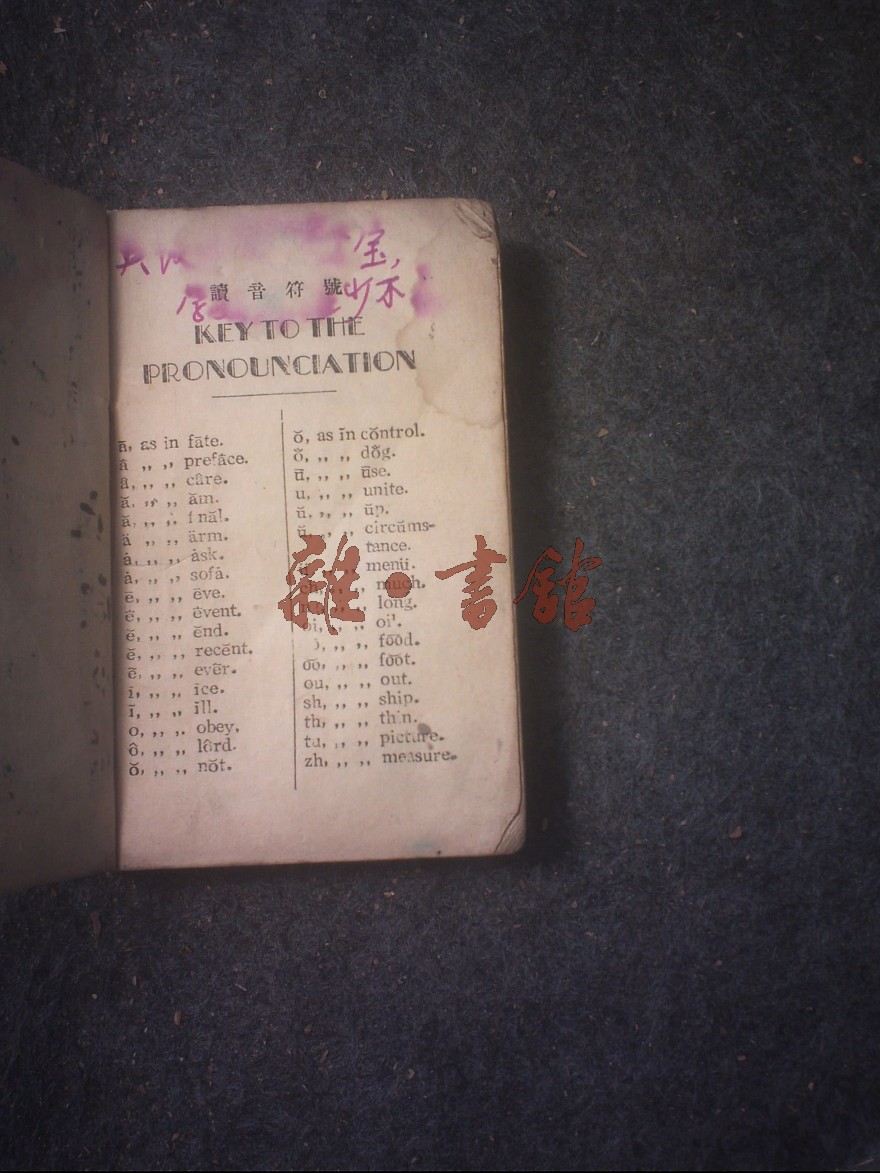 宝,
讀音符號
少不
KEY TO THE
PRONOUNCIATION
ā, as in fāte.
â „ „ prefâce.
â, „ „ câre.
ă, „ „ ăm.
ă, „ „ f năl.
ä „ „ ärm.
ȧ, „ „ ȧsk.
ȧ, „ „ sofȧ.
ē, „ „ ēve.
ē, „ „ ēvent.
ĕ, „ „ ĕnd.
ĕ, „ „ recĕnt.
ẽ, „ „ evẽr.
ī, „ „ īce.
ĭ, „ „ ĭll.
o, „ „ obey.
ô, „ „ lôrd.
ŏ, „ „ nŏt.
ŏ, as ĭn cŏntrol.
ŏ, „ „ dŏg.
ū, „ „ ūse.
u, „ „ unite.
ŭ, „ „ ŭp.
ŭ, „ „ circŭms-
tance.
„ „ menü.
ch, „ „ much.
„ „ long.
oi, „ „ oil.
„ „ fōōd.
ŏŏ, „ „ fŏŏt.
ou, „ „ out.
sh, „ „ ship.
th, „ „ thin.
tu, „ „ picture.
zh, „ „ measure.
雜·書館